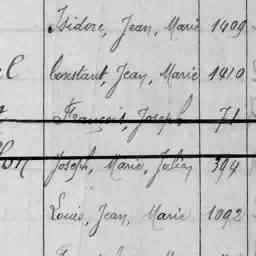 Isidore, Jean, Marie 1409
Constant, Jean, Marie 1410
François, Joseph 71
Joseph, Marie, Julien 394
Louis, Jean, Marie 1092